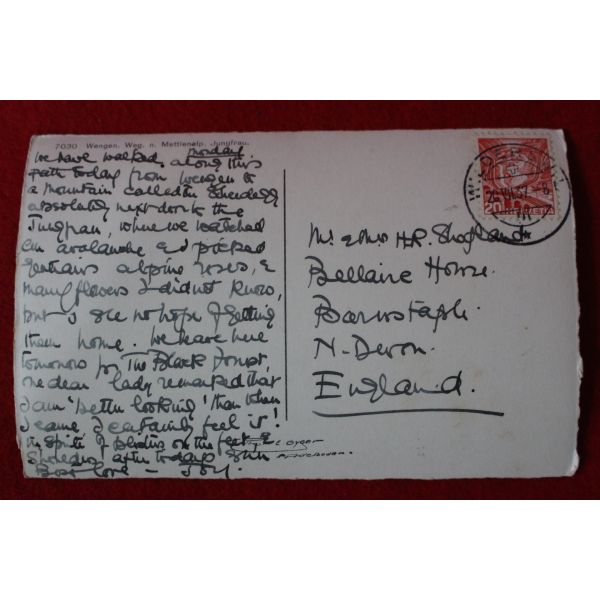 7030 Wengen. Weg. n. Mettlenalp. Jungfrau.
Monday
We have walked along this
path today from Wengen to
a mountain called the Scheidegg
absolutely next door to the
Jungfrau, where we watched
an avalanche and picked
gentians alpine roses, &
many flowers I did not know,
but I see no hope of getting
them home. We leave here
tomorrow for The Black Forest,
one dear lady remarked that
I am 'better looking' than when
I came, I certainly feel it!
In spite of blisters on the feet &
shoulders after todays sun
Best love - Joy.
Mr & Mrs H.R. Shogland
Bellaire House.
Barnstaple
N. Devon.
England.
20
HELVETIA